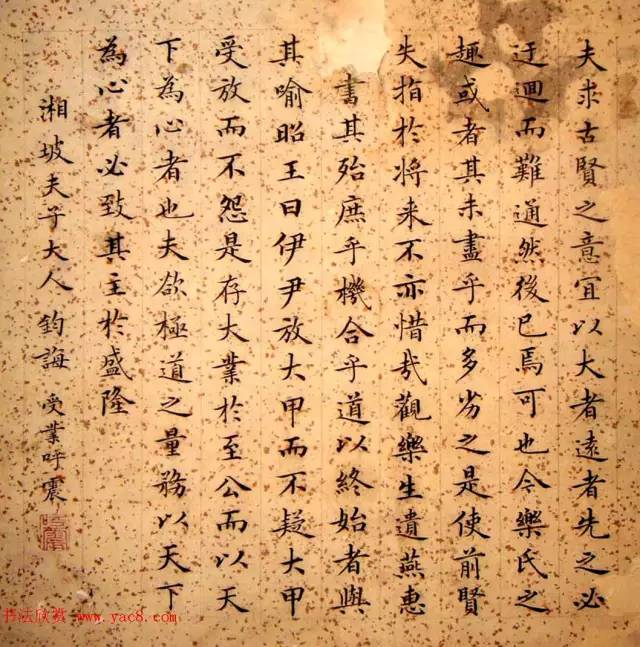 夫求古賢之意宜以大者遠者先之必
迂迴而難通然後已焉可也今樂氏之
趣或者其未盡乎而多劣之是使前賢
失指於將来不亦惜哉觀樂生遺燕惠
書其殆庶乎機合乎道以終始者與
其喻昭王曰伊尹放大甲而不疑大甲
受放而不怨是存大業於至公而以天
下為心者也夫欲極道之量務以天下
為心者必致其主於盛隆
湘坡夫子大人鈞誨 受業呼震
书法欣赏 www.yac8.com